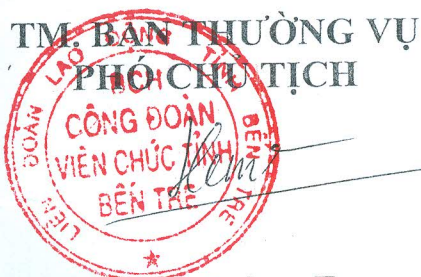 TM. BAN THƯỜNG VỤ
PHÓ CHỦ TỊCH
LIÊN ĐOÀN LAO ĐỘNG TỈNH BẾN TRE
BCH
CÔNG ĐOÀN
VIÊN CHỨC TỈNH
BẾN TRE